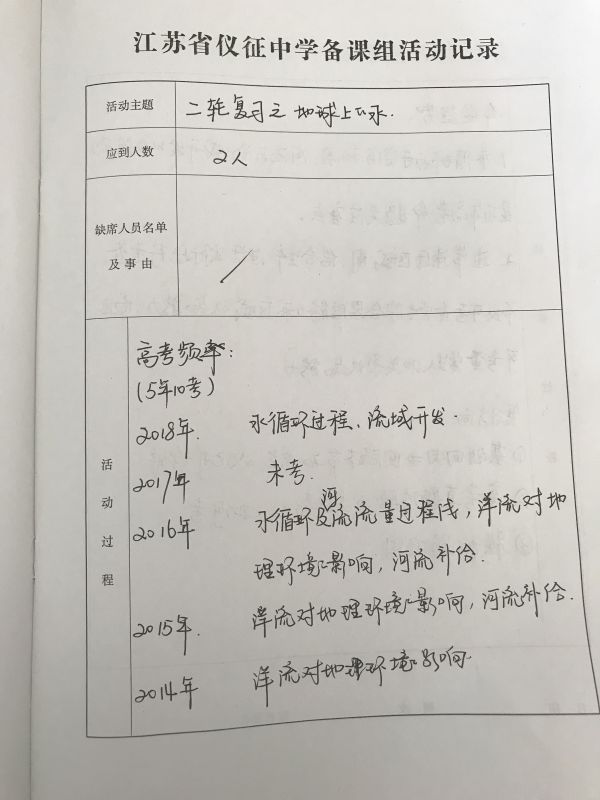 江苏省仪征中学备课组活动记录
活动主题 二轮复习之 地球上的水.
应到人数 2人
缺席人员名单
及事由 /
活动过程
高考频率:
(5年10考)
2018年. 水循环过程、流域开发.
2017年 未考.
2016年 水循环及河流流量过程线，洋流对地
理环境的影响，河流补给.
2015年. 洋流对地理环境的影响，河流补给.
2014年 洋流对地理环境的影响.